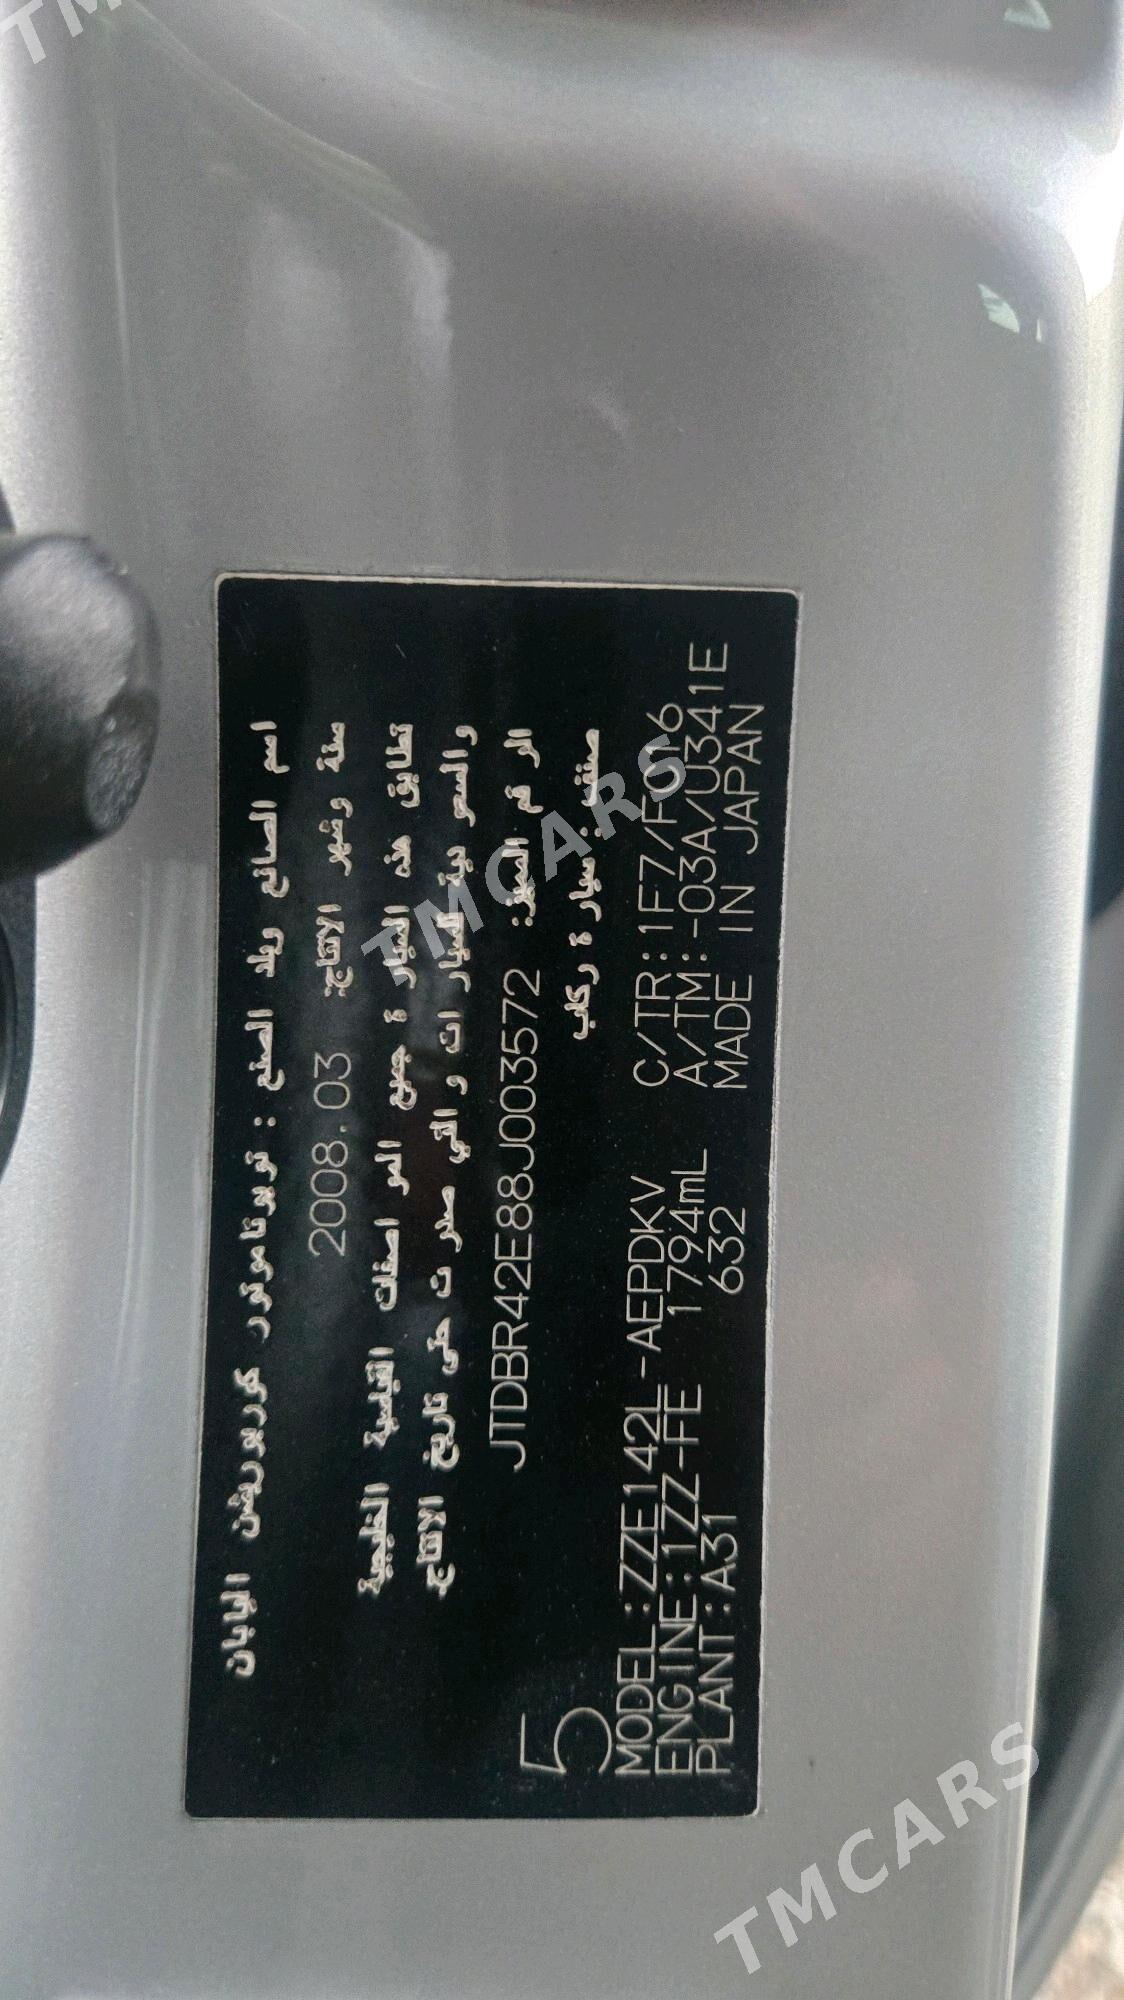 اسم الصانع وبلد الصنع : تويوتا موتور كوربوريشن اليابان
سنة وشهر الانتاج: 2008.03
تطابق هذه السيارة جميع المواصفات القياسية الخليجية
والسعودية للسيارات والتي صدرت حتى تاريخ الانتاج.
الرقم المميز: JTDBR42E88J003572
صنف : سيارة ركاب
5
MODEL:ZZE142L-AEPDKV C/TR:1F7/F016
ENGINE:1ZZ-FE 1794mL A/TM:-03A/U341E
PLANT:A31 632 MADE IN JAPAN
TMCARS
TMCARS
TM